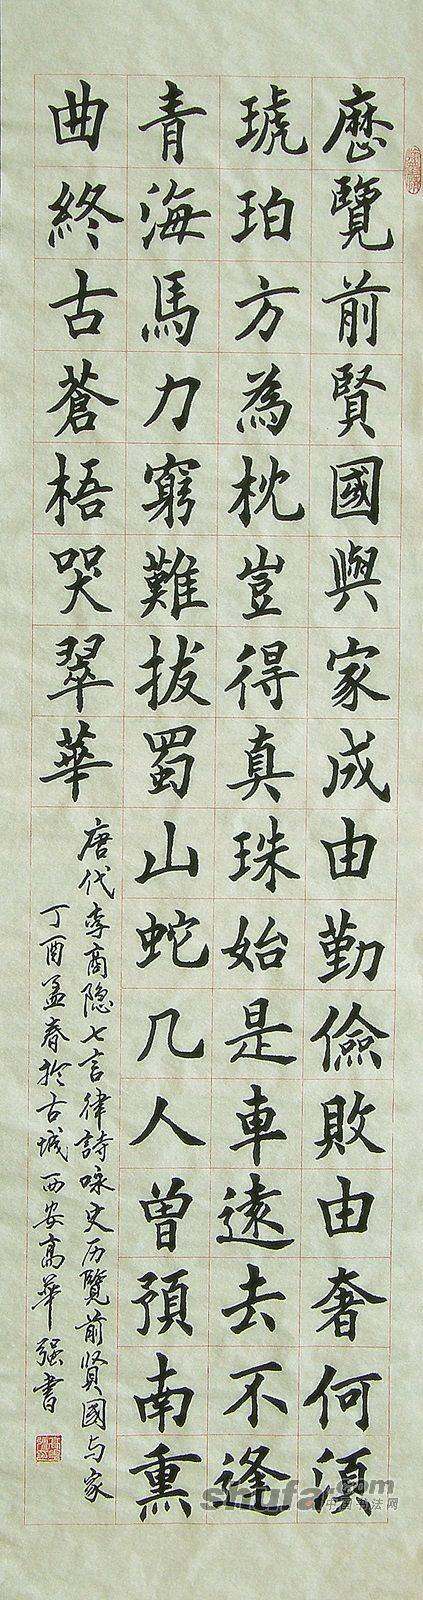 歷覽前賢國與家成由勤儉敗由奢何須
琥珀方為枕豈得真珠始是車遠去不逢
青海馬力窮難拔蜀山蛇几人曾預南熏
曲終古蒼梧哭翠華
唐代李商隐七言律詩咏史历覽前贤國与家
丁酉孟春於古城西安高華强書
shufa.com
中国书法网